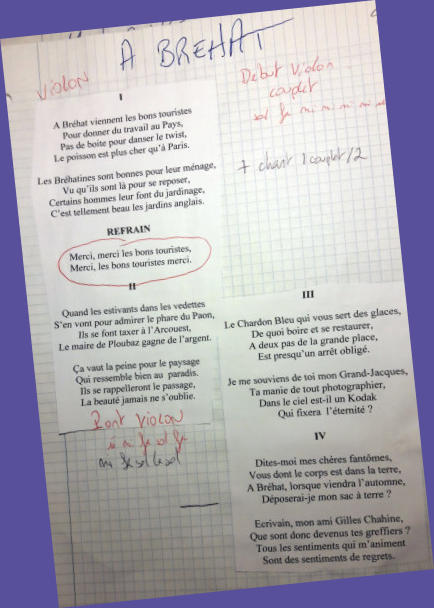 A BREHAT
VIOLON
I
A Bréhat viennent les bons touristes
Pour donner du travail au Pays,
Pas de boite pour danser le twist,
Le poisson est plus cher qu'à Paris.
Les Bréhatines sont bonnes pour leur ménage,
Vu qu'ils sont là pour se reposer,
Certains hommes leur font du jardinage,
C'est tellement beau les jardins anglais.
REFRAIN
Merci, merci les bons touristes,
Merci, les bons touristes merci.
II
Quand les estivants dans les vedettes
S'en vont pour admirer le phare du Paon,
Ils se font taxer à l'Arcouest,
Le maire de Ploubaz gagne de l'argent.
Ça vaut la peine pour le paysage
Qui ressemble bien au paradis.
Ils se rappelleront le passage,
La beauté jamais ne s'oublie.
Pont VIOLON
mi fa sol la sol
Debut Violon
couplet
sol fa mi mi mi mi mi
+ chant 1 couplet/2
III
Le Chardon Bleu qui vous sert des glaces,
De quoi boire et se restaurer,
A deux pas de la grande place,
Est presqu'un arrêt obligé.
Je me souviens de toi mon Grand-Jacques,
Ta manie de tout photographier,
Dans le ciel est-il un Kodak
Qui fixera l'éternité ?
IV
Dites-moi mes chères fantômes,
Vous dont le corps est dans la terre,
A Bréhat, lorsque viendra l'automne,
Déposerai-je mon sac à terre ?
Ecrivain, mon ami Gilles Chahine,
Que sont donc devenus tes greffiers ?
Tous les sentiments qui m'animent
Sont des sentiments de regrets.